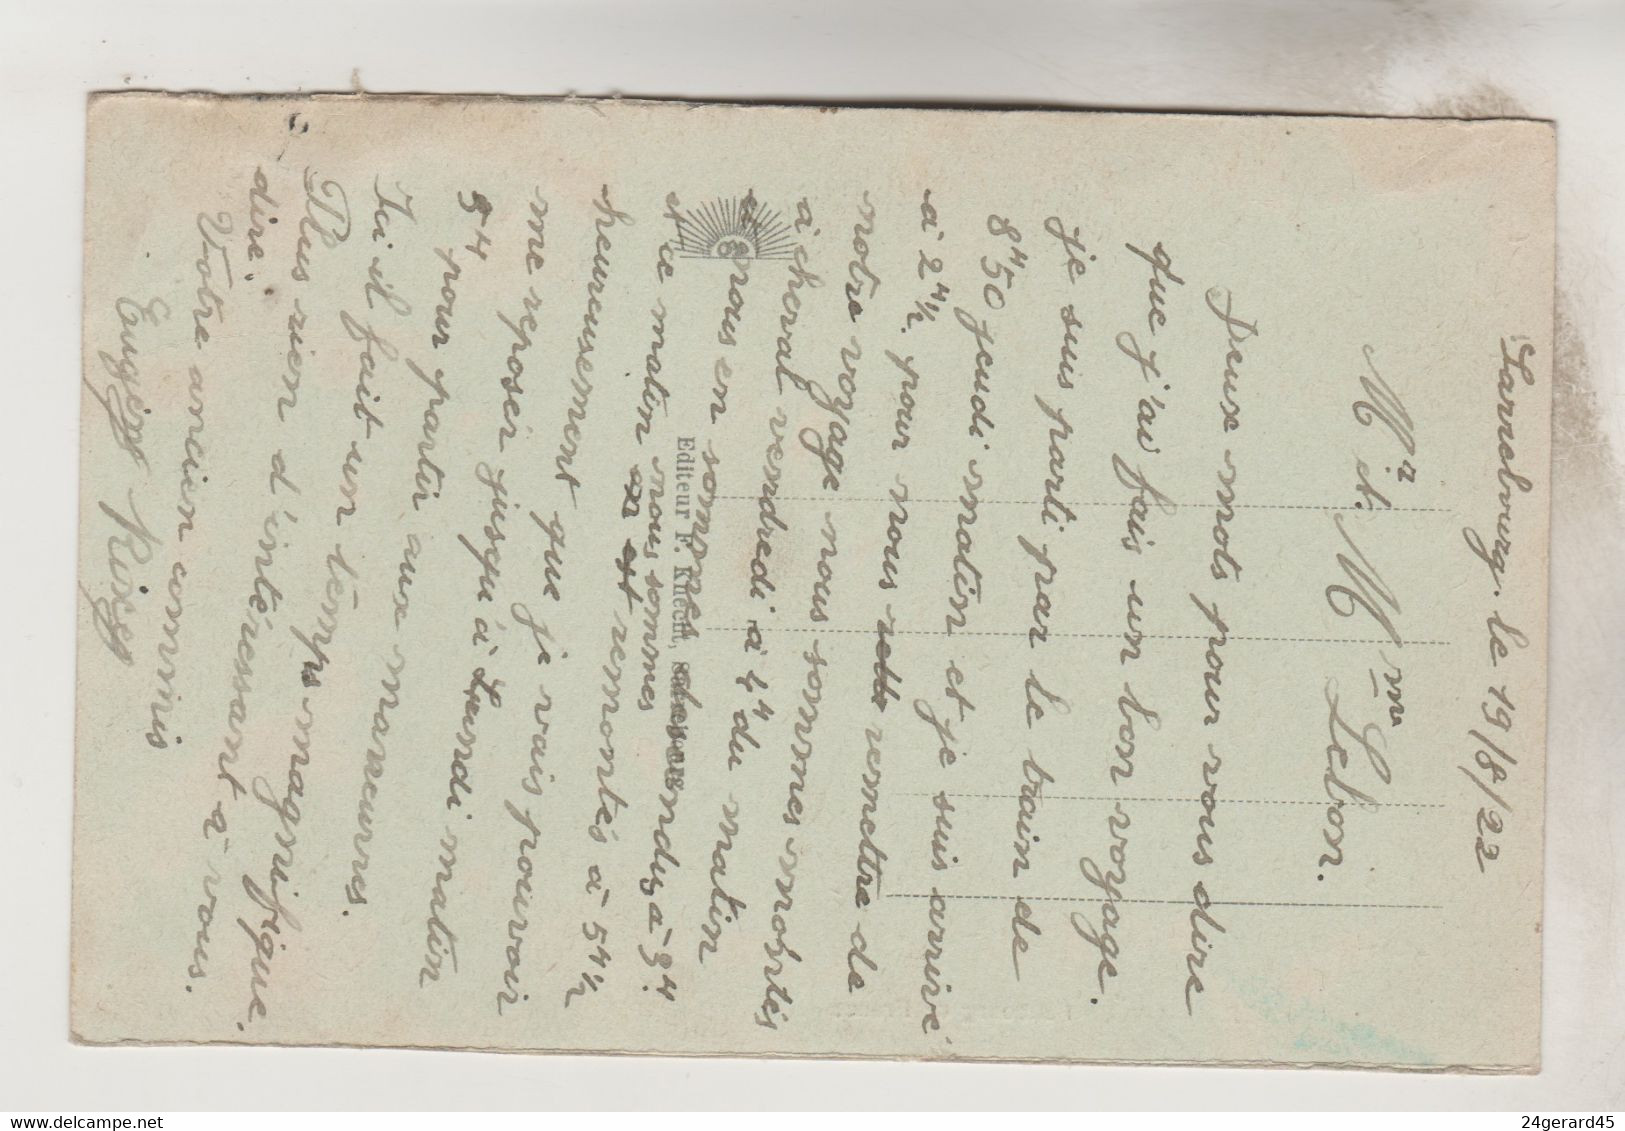 Sarrebourg. le 19/8/22
Mr et. Mme Lebon.
Deux mots pour vous dire
que j'ai fais un bon voyage.
je suis parti par le train de
8H50 jeudi matin et je suis arrivé
à 2H1/2. pour nous remettre de
notre voyage nous sommes montés
à cheval vendredi à 4H du matin
nous en sommes descendus à 9H
et ce matin nous sommes remontés à 5H1/2
heureusement que je vais pouvoir
me reposer jusqu'à Lundi matin
5H pour partir aux manœuvres.
Ici il fait un temps magnifique.
Plus rien d'intéressant à vous
dire.
Votre ancien commis
Eugène
Editeur F. Knecht,
24gerard45